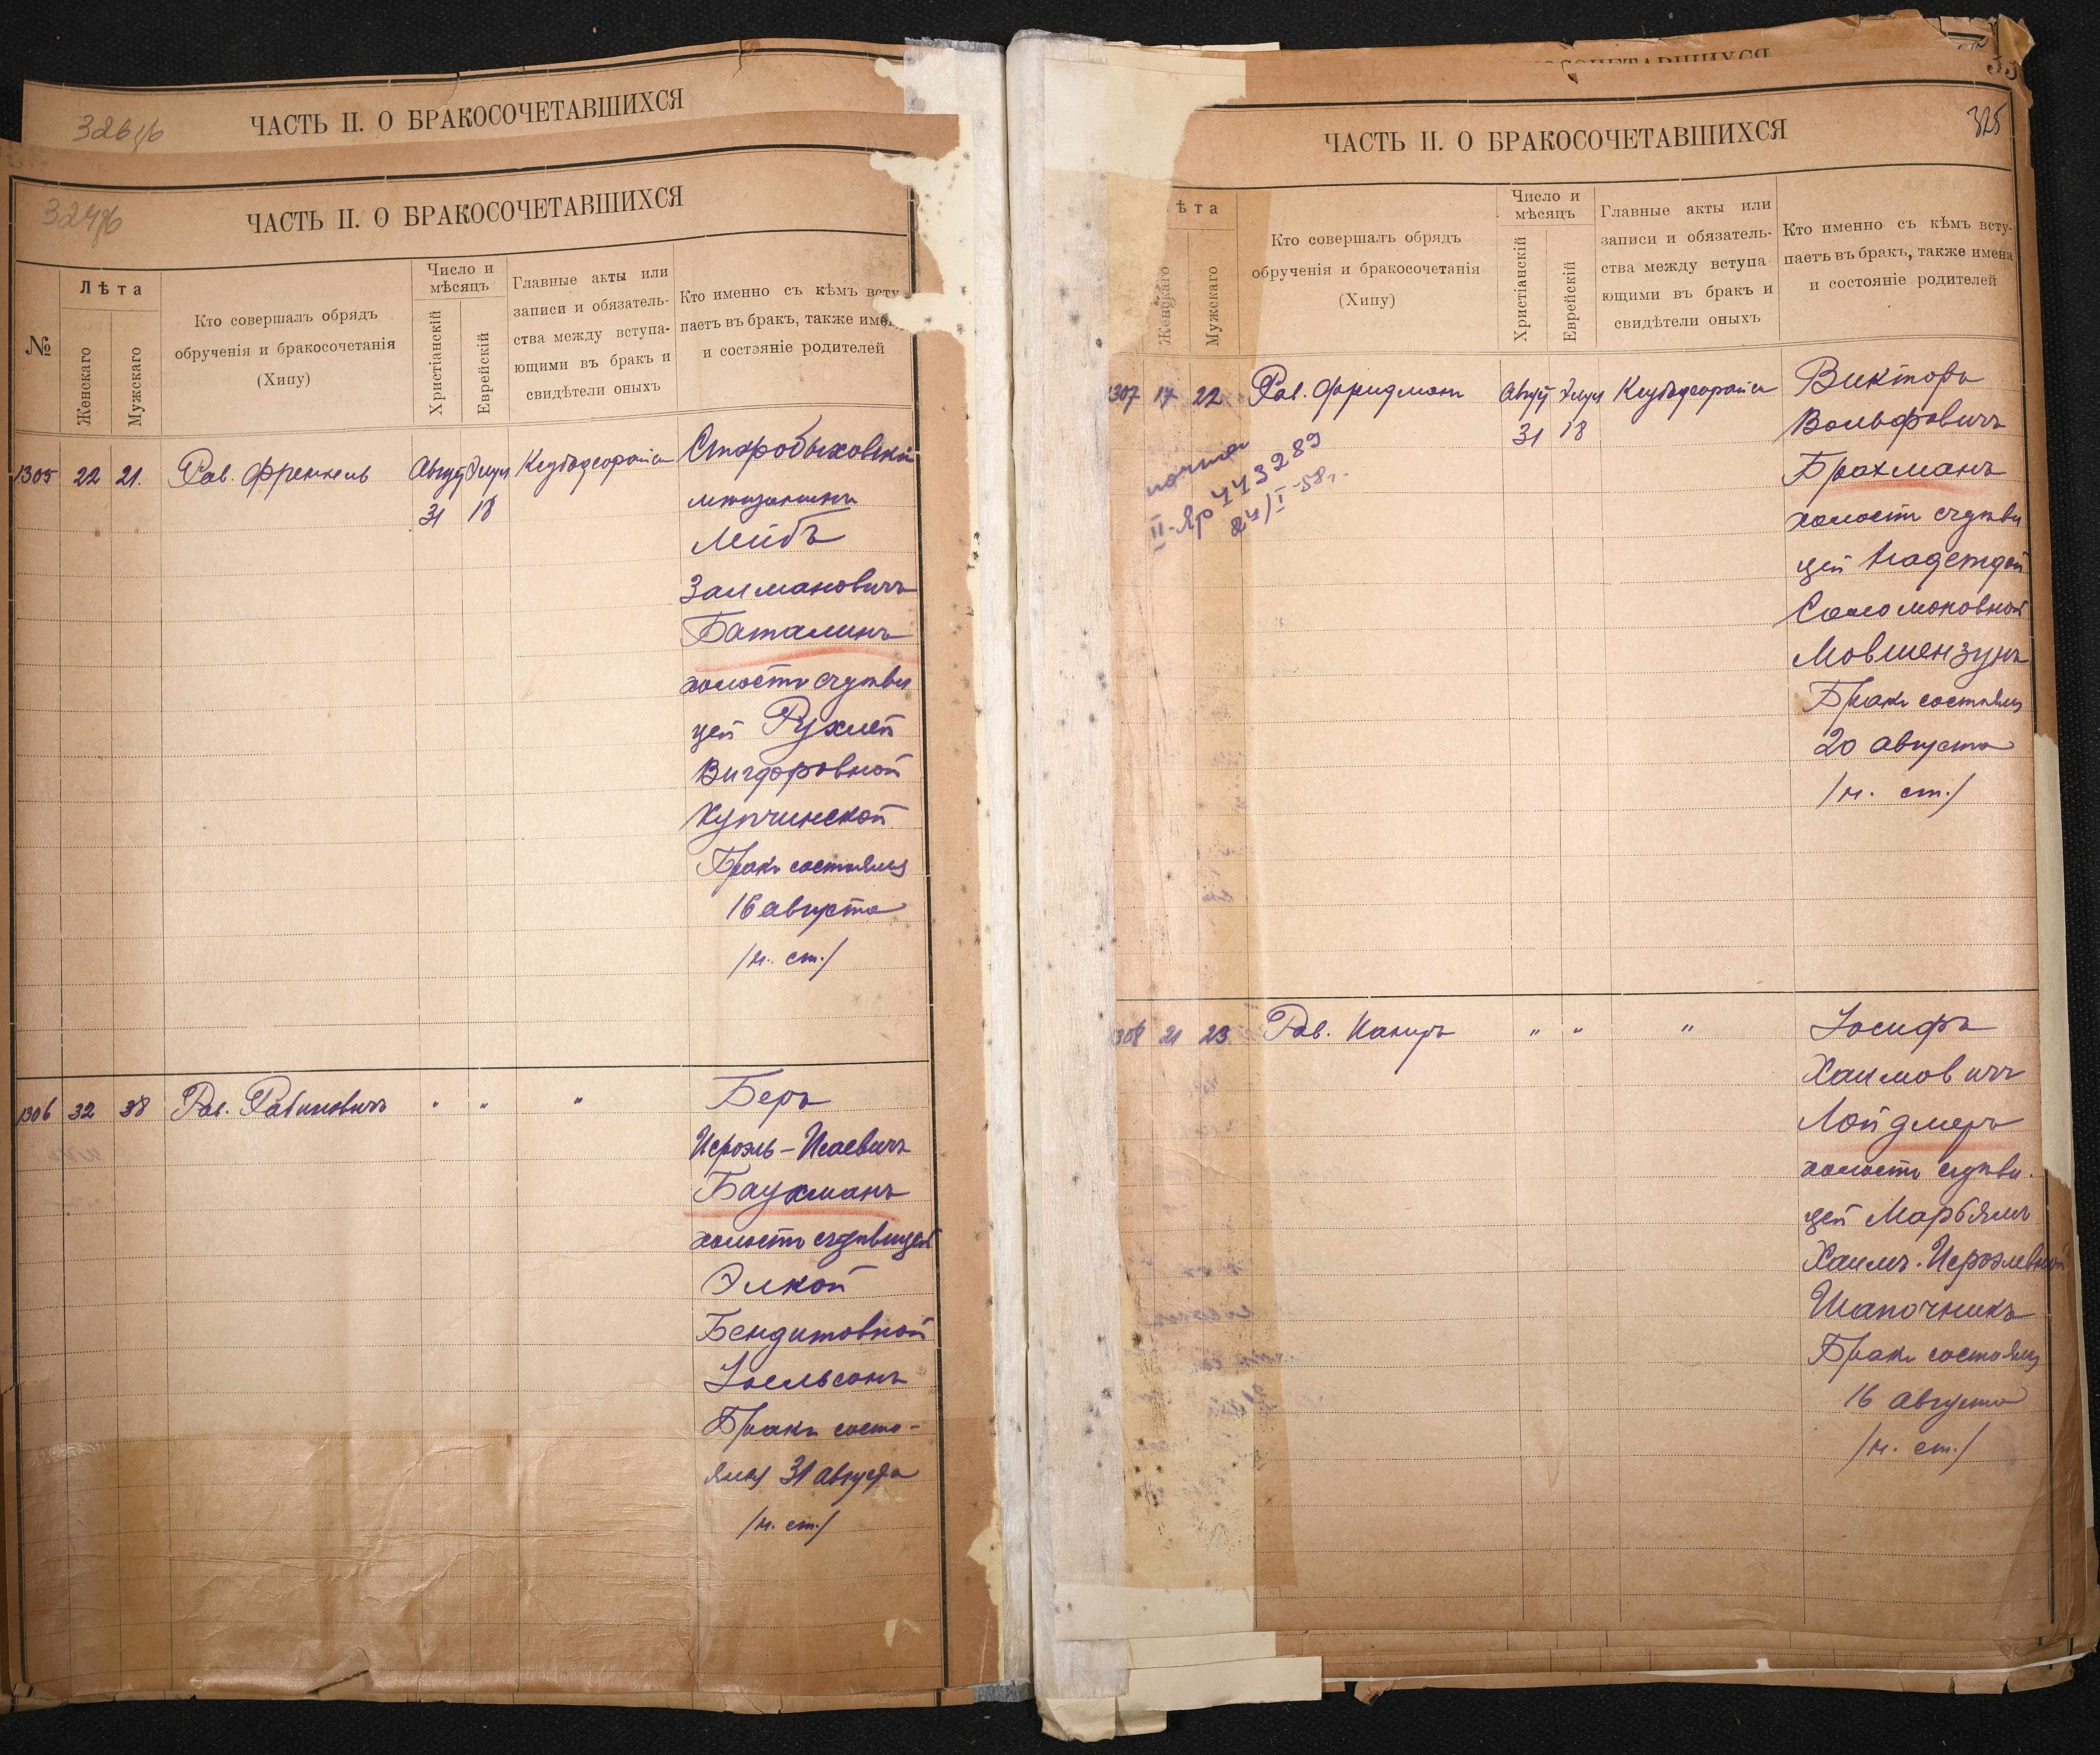 326об
ЧАСТЬ II. О БРАКОСОЧЕТАВШИХСЯ
324об
ЧАСТЬ II. О БРАКОСОЧЕТАВШИХСЯ
№
Лѣта
Женскаго
Мужскаго
Кто совершалъ обрядъ
обрученія и бракосочетанія
(Хипу)
Число и
мѣсяцъ
Христіанскій
Еврейскій
Главные акты или
записи и обязатель-
ства между вступа-
ющими въ бракъ и
свидѣтели оныхъ
Кто именно съ кѣмъ всту-
паетъ въ бракъ, также имен
и состояніе родителей
1305 22 21. Рав. Френкель Август Элул
31 18
Старобыховскій
мѣщанинъ
Лейбъ
Залмановичъ
Баталинъ
холостъ съ дѣви
цей Рухлей
Вигдоровной
Купчинской
Бракъ состоялся
16 августа
/н. ст./
1306 32 38 Рав. Рабиновичъ " " "
Беръ
Исроэль-Исаевичъ
Баухманъ
холостъ съ дѣвицей
Элкой
Бендитовной
Іоельсонъ
Бракъ состо-
ялся 31 августа
/н. ст./
ЧАСТЬ II. О БРАКОСОЧЕТАВШИХСЯ
325
ѣта
Женскаго
Мужскаго
Кто совершалъ обрядъ
обрученія и бракосочетанія
(Хипу)
Число и
мѣсяцъ
Христіанскій
Еврейскій
Главные акты или
записи и обязатель-
ства между вступа-
ющими въ бракъ и
свидѣтели оныхъ
Кто именно съ кѣмъ всту-
паетъ въ бракъ, также имена
и состояніе родителей
1307 17 22 Рав. Фридманъ Август Элул
31 18
II-Яр 443289
24/I-58г.
Викторъ
Вольфовичъ
Брахманъ
холостъ съ дѣви
цей Надеждой
Соломоновной
Мовшензунъ
Бракъ состоялся
20 августа
/н. ст./
1308 21 23 Рав. " " "
Іосифъ
Хаимовичъ
Лойдмеръ
холостъ съ дѣви.
цей Марьямъ
Хаимъ. Исроэлевной
Шапочникъ
Бракъ состоялся
16 августа
/н. ст./